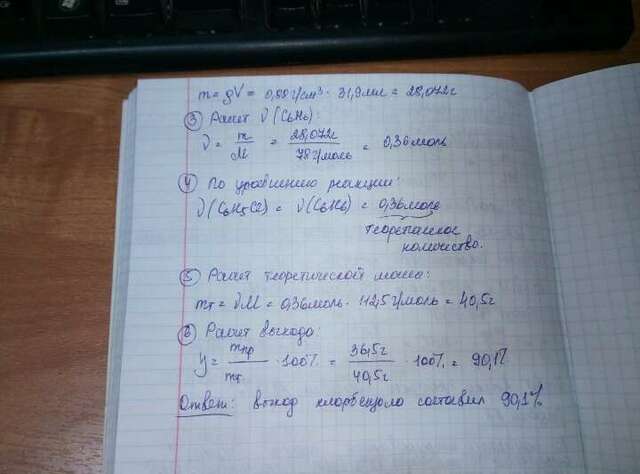 m = ρV = 0,88 г/см³ · 31,9 мл = 28,072 г
③ Расчет ν(C₆H₆):
ν = m/M = 28,072г/78 г/моль = 0,36 моль
④ По уравнению реакции:
ν(C₆H₅Cl) = ν(C₆H₆) = 0,36 моль
теоретическое
количество.
⑤ Расчет теоретической массы:
mт = νM = 0,36 моль · 112,5 г/моль = 40,5 г
⑥ Расчет выхода:
y = mпр/mт · 100% = 36,5 г/40,5 г · 100% = 90,1%
Ответ: выход хлорбензола составил 90,1%